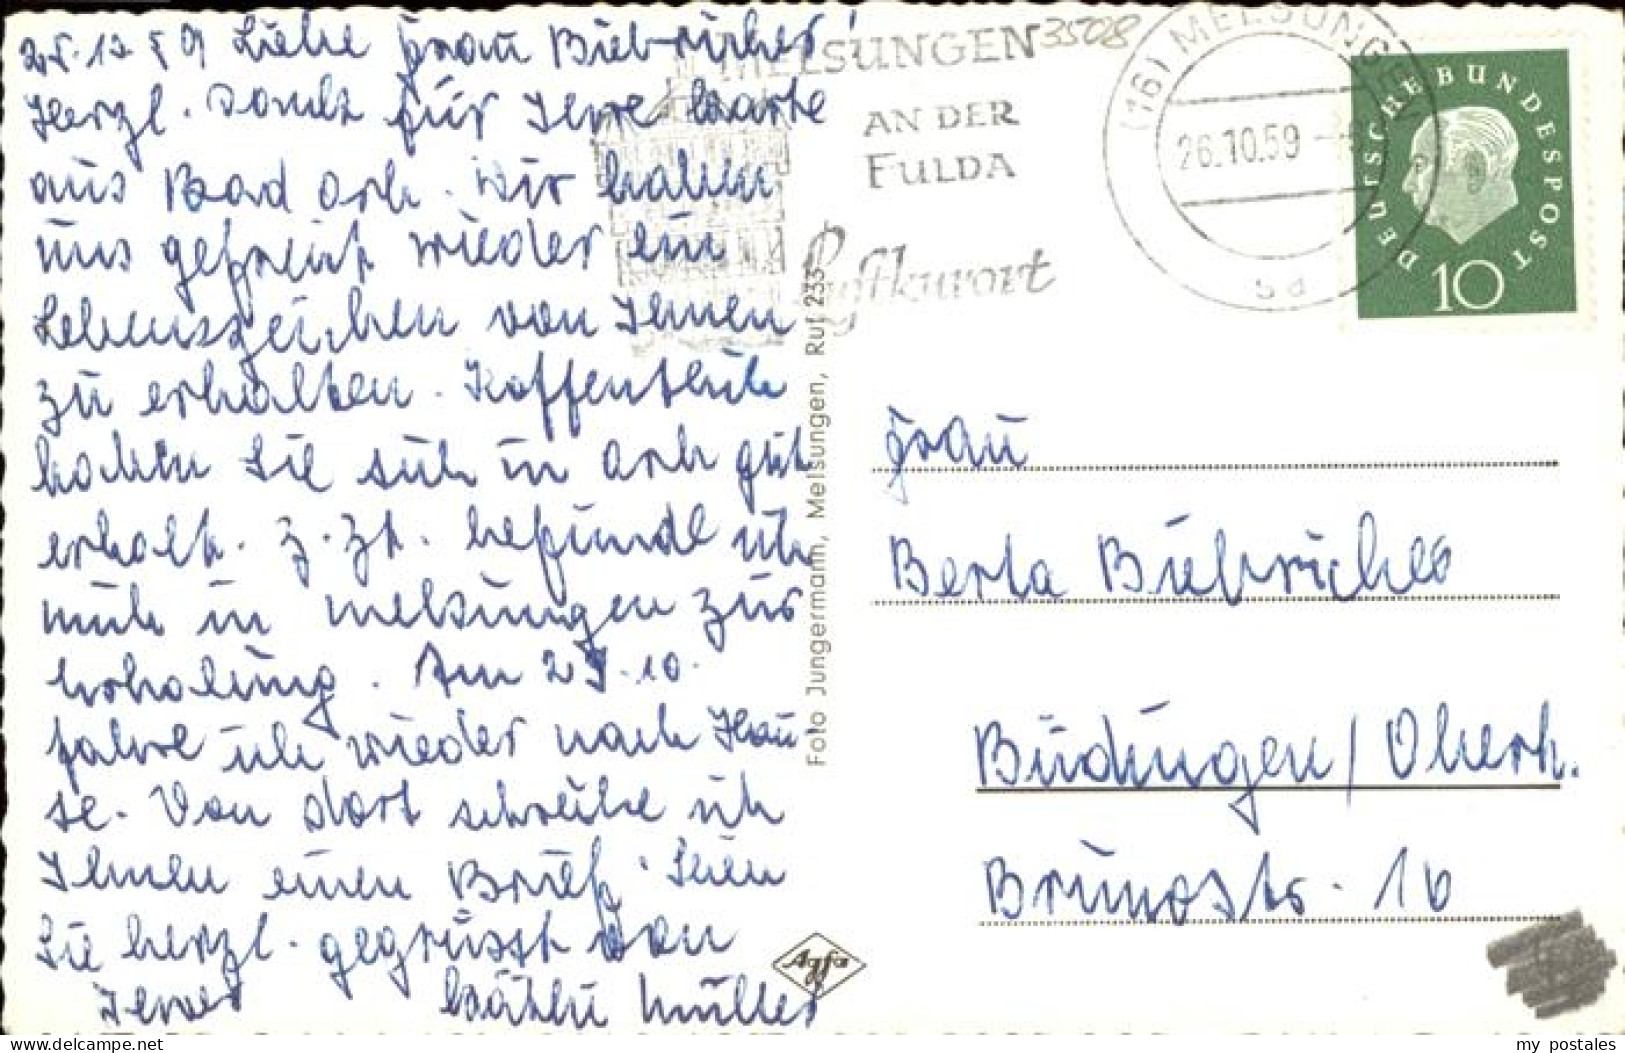 25.10.59 Liebe Frau Biebricher!
Herzl. Dank für Ihre Karte
aus Bad Orb. Wir haben
uns gefreut wieder ein
Lebenszeichen von Ihnen
zu erhalten. Hoffentlich
haben Sie sich in Orb gut
erholt. Z. Zt. befinde ich
mich in Melsungen zur
Erholung. Am 27.10.
fahre ich wieder nach Hau
se. Von dort schreibe ich
Ihnen einen Brief. Seien
Sie herzl. gegrüsst von
Ihrer Käthe Müller
Foto Jungermann, Melsungen, Ruf 233
Agfa
MELSUNGEN
AN DER
FULDA
Luftkurort
3508
(16) MELSUNGEN
26.10.59
DEUTSCHE BUNDESPOST
10
Frau
Berta Biebricher
Büdingen/Oberh.
Brunostr. 16